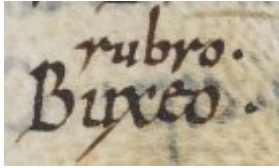 rubro.
Buxeo.